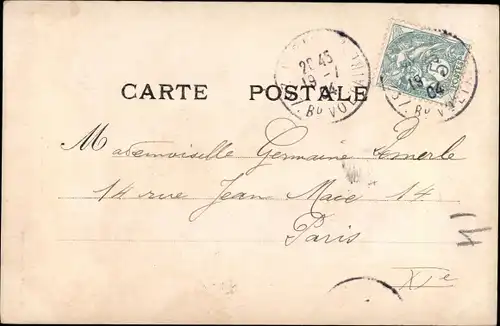 20 45
19 - 1
04
Bd VOLTAIRE
5
19
04
Bd VOLTAIRE
CARTE POSTALE
Mademoiselle Germaine
14 rue Jean Macé 14
Paris
XIe